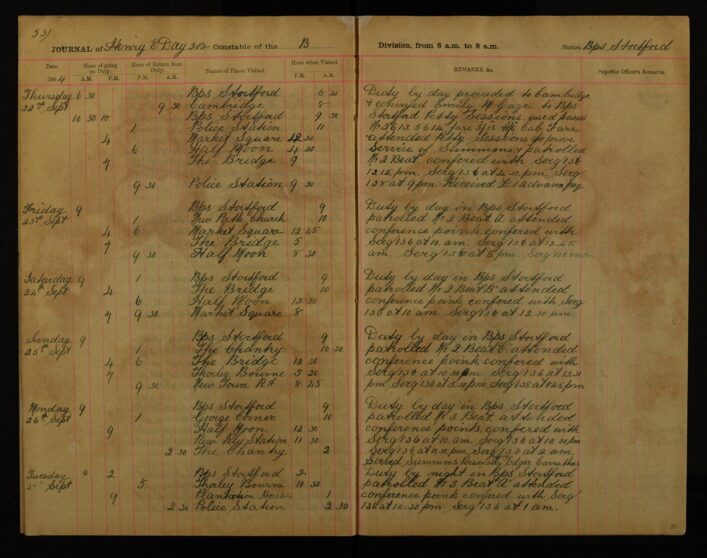 531
JOURNAL of Henry E Day 302 Constable of the B Division, from 8 a.m. to 8 a.m. Station Bps Stortford
Date. Hour of going on Duty. Hour of Return from Duty. Names of Places Visited. Hour when Visited. REMARKS, &c. Superior Officer's Remarks.
1904 A.M. P.M. P.M. A.M. P.M. A.M.
Thursday 6 30 Bps Stortford 6 30 Duty by day proceeded to Cambridge
22nd Sept 9 30 Cambridge 8 & conveyed Emily M Gage to Bps
10 50 10 Bps Stortford 9 30 Stortford Petty Sessions used passes
1 Police Station 11 Cab Fare
4 Market Square 12 30 attended Petty Sessions to prove
6 Half Moon 4 30 Service of Summons & patrolled
7 The Bridge 9 No 2 Beat, confered with Serg 136
12.15 pm. Serg 136 at 4.30 pm, Serg
9 30 Police Station 9 30 138 at 9 pm. Received £1 advance pay
Friday 9 Bps Stortford 9 Duty by day in Bps Stortford
23rd Sept 1 New Path Church 10 patrolled No 2 Beat A attended
4 6 Market Square 12 45 conference points confered with
7 The Bridge 5 Serg 136 at 10 am. Serg 136 at 12.45
9 30 Half Moon 8 30 am Serg 136 at 5 pm.
Saturday 9 1 Bps Stortford 9 Duty by day in Bps Stortford
24th Sept 4 The Bridge 10 patrolled No 2 Beat B attended
6 Half Moon 12 30 conference points, confered with Serg
7 9 30 Market Square 8 136 at 10 am. Serg 136 at 12.30 pm
Sunday 9 Bps Stortford 9 Duty by day in Bps Stortford
25th Sept 1 The Chantry 10 30 patrolled No 2 Beat C attended
4 6 The Bridge 12 30 conference points confered with
7 Thorley Bourne 5 30 Serg 136 at 10.30 pm. Serg 136 at 12.30
9 30 New Town Rd 8 45 pm Serg 136 at 5.30 pm Serg 138 at 8.45 pm
Monday 9 Bps Stortford 9 Duty by day in Bps Stortford
26th Sept 1 George Corner 10 patrolled No 3 Beat attended
9 Half Moon 12 30 conference points, confered with
Rly Station 11 30 Serg 136 at 10 am. Serg 136 at 12.30 pm
2 30 The Chantry 2 Serg 136 at 11.30 pm, Serg 136 at 2 am
Served Summons Personally Edgar
Tuesday 9 2 Bps Stortford 2 Duty by night in Bps Stortford
Sept 5 Thorley Bourne 10 30 patrolled No 3 Beat A attended
9 Plantation House 1 conference points confered with Serg
2 30 Police Station 2 30 136 at 10.30 pm. Serg 136 at 1 am.